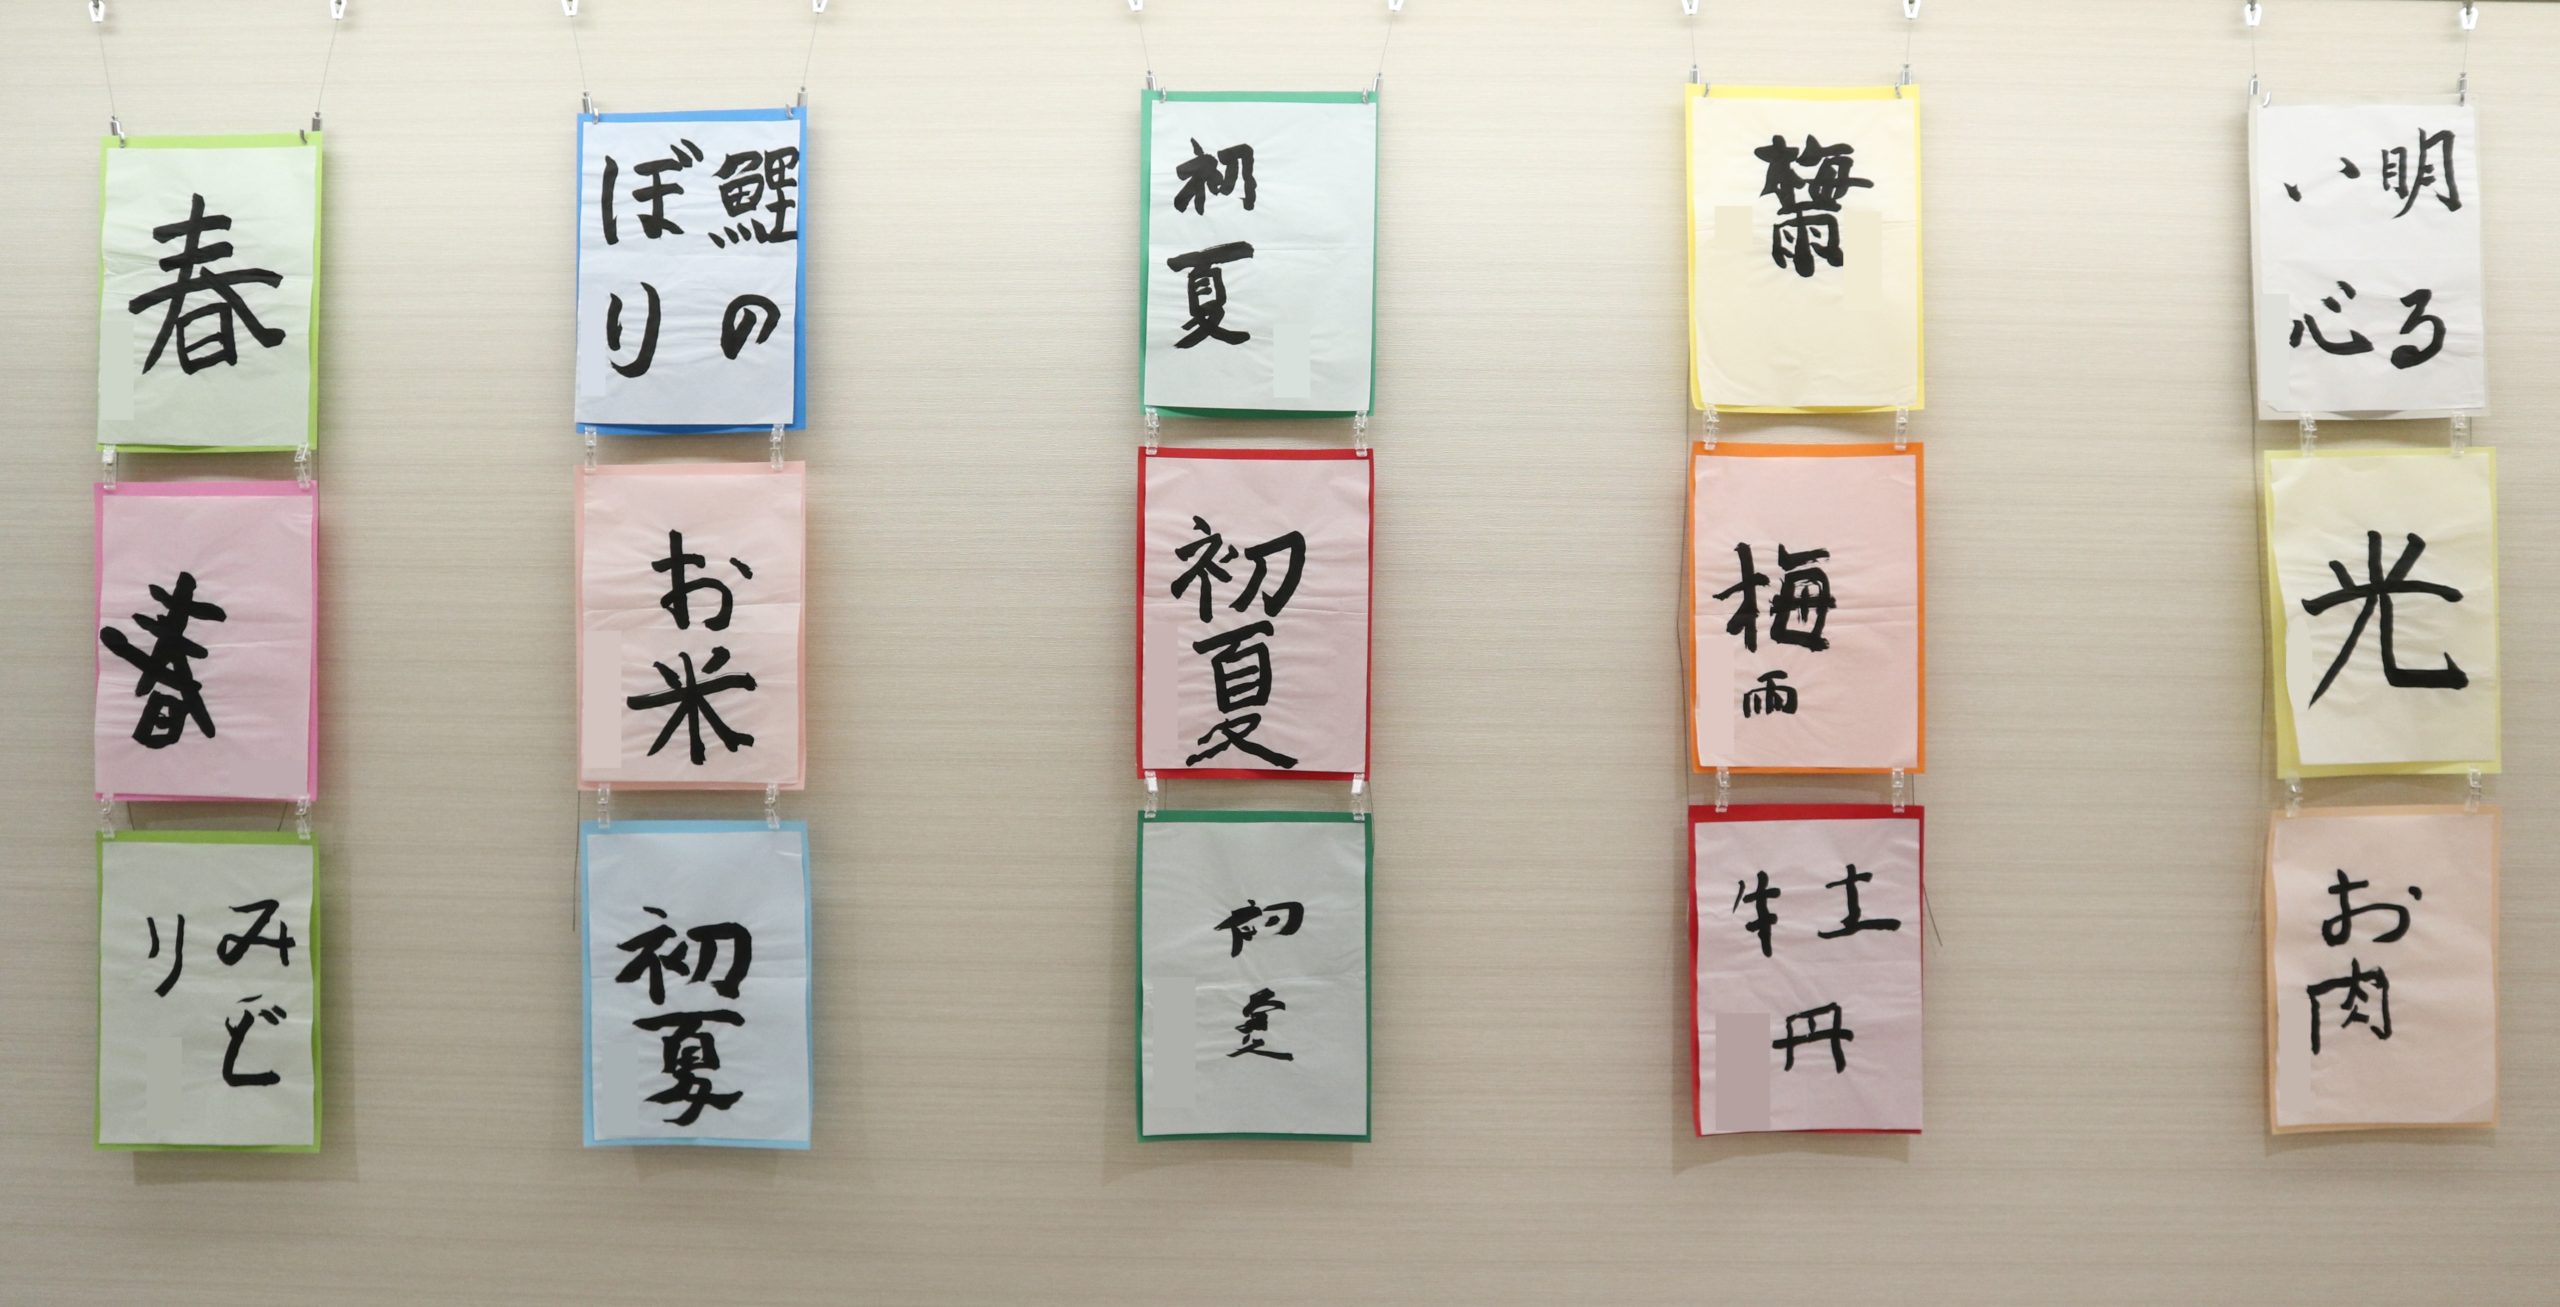 春
春
みど
り
鯉の
ぼり
お米
初夏
初夏
初夏
初夏
梅雨
梅雨
牡
丹
明る
い心
光
お肉